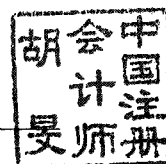 中国注册
会计师
胡旻